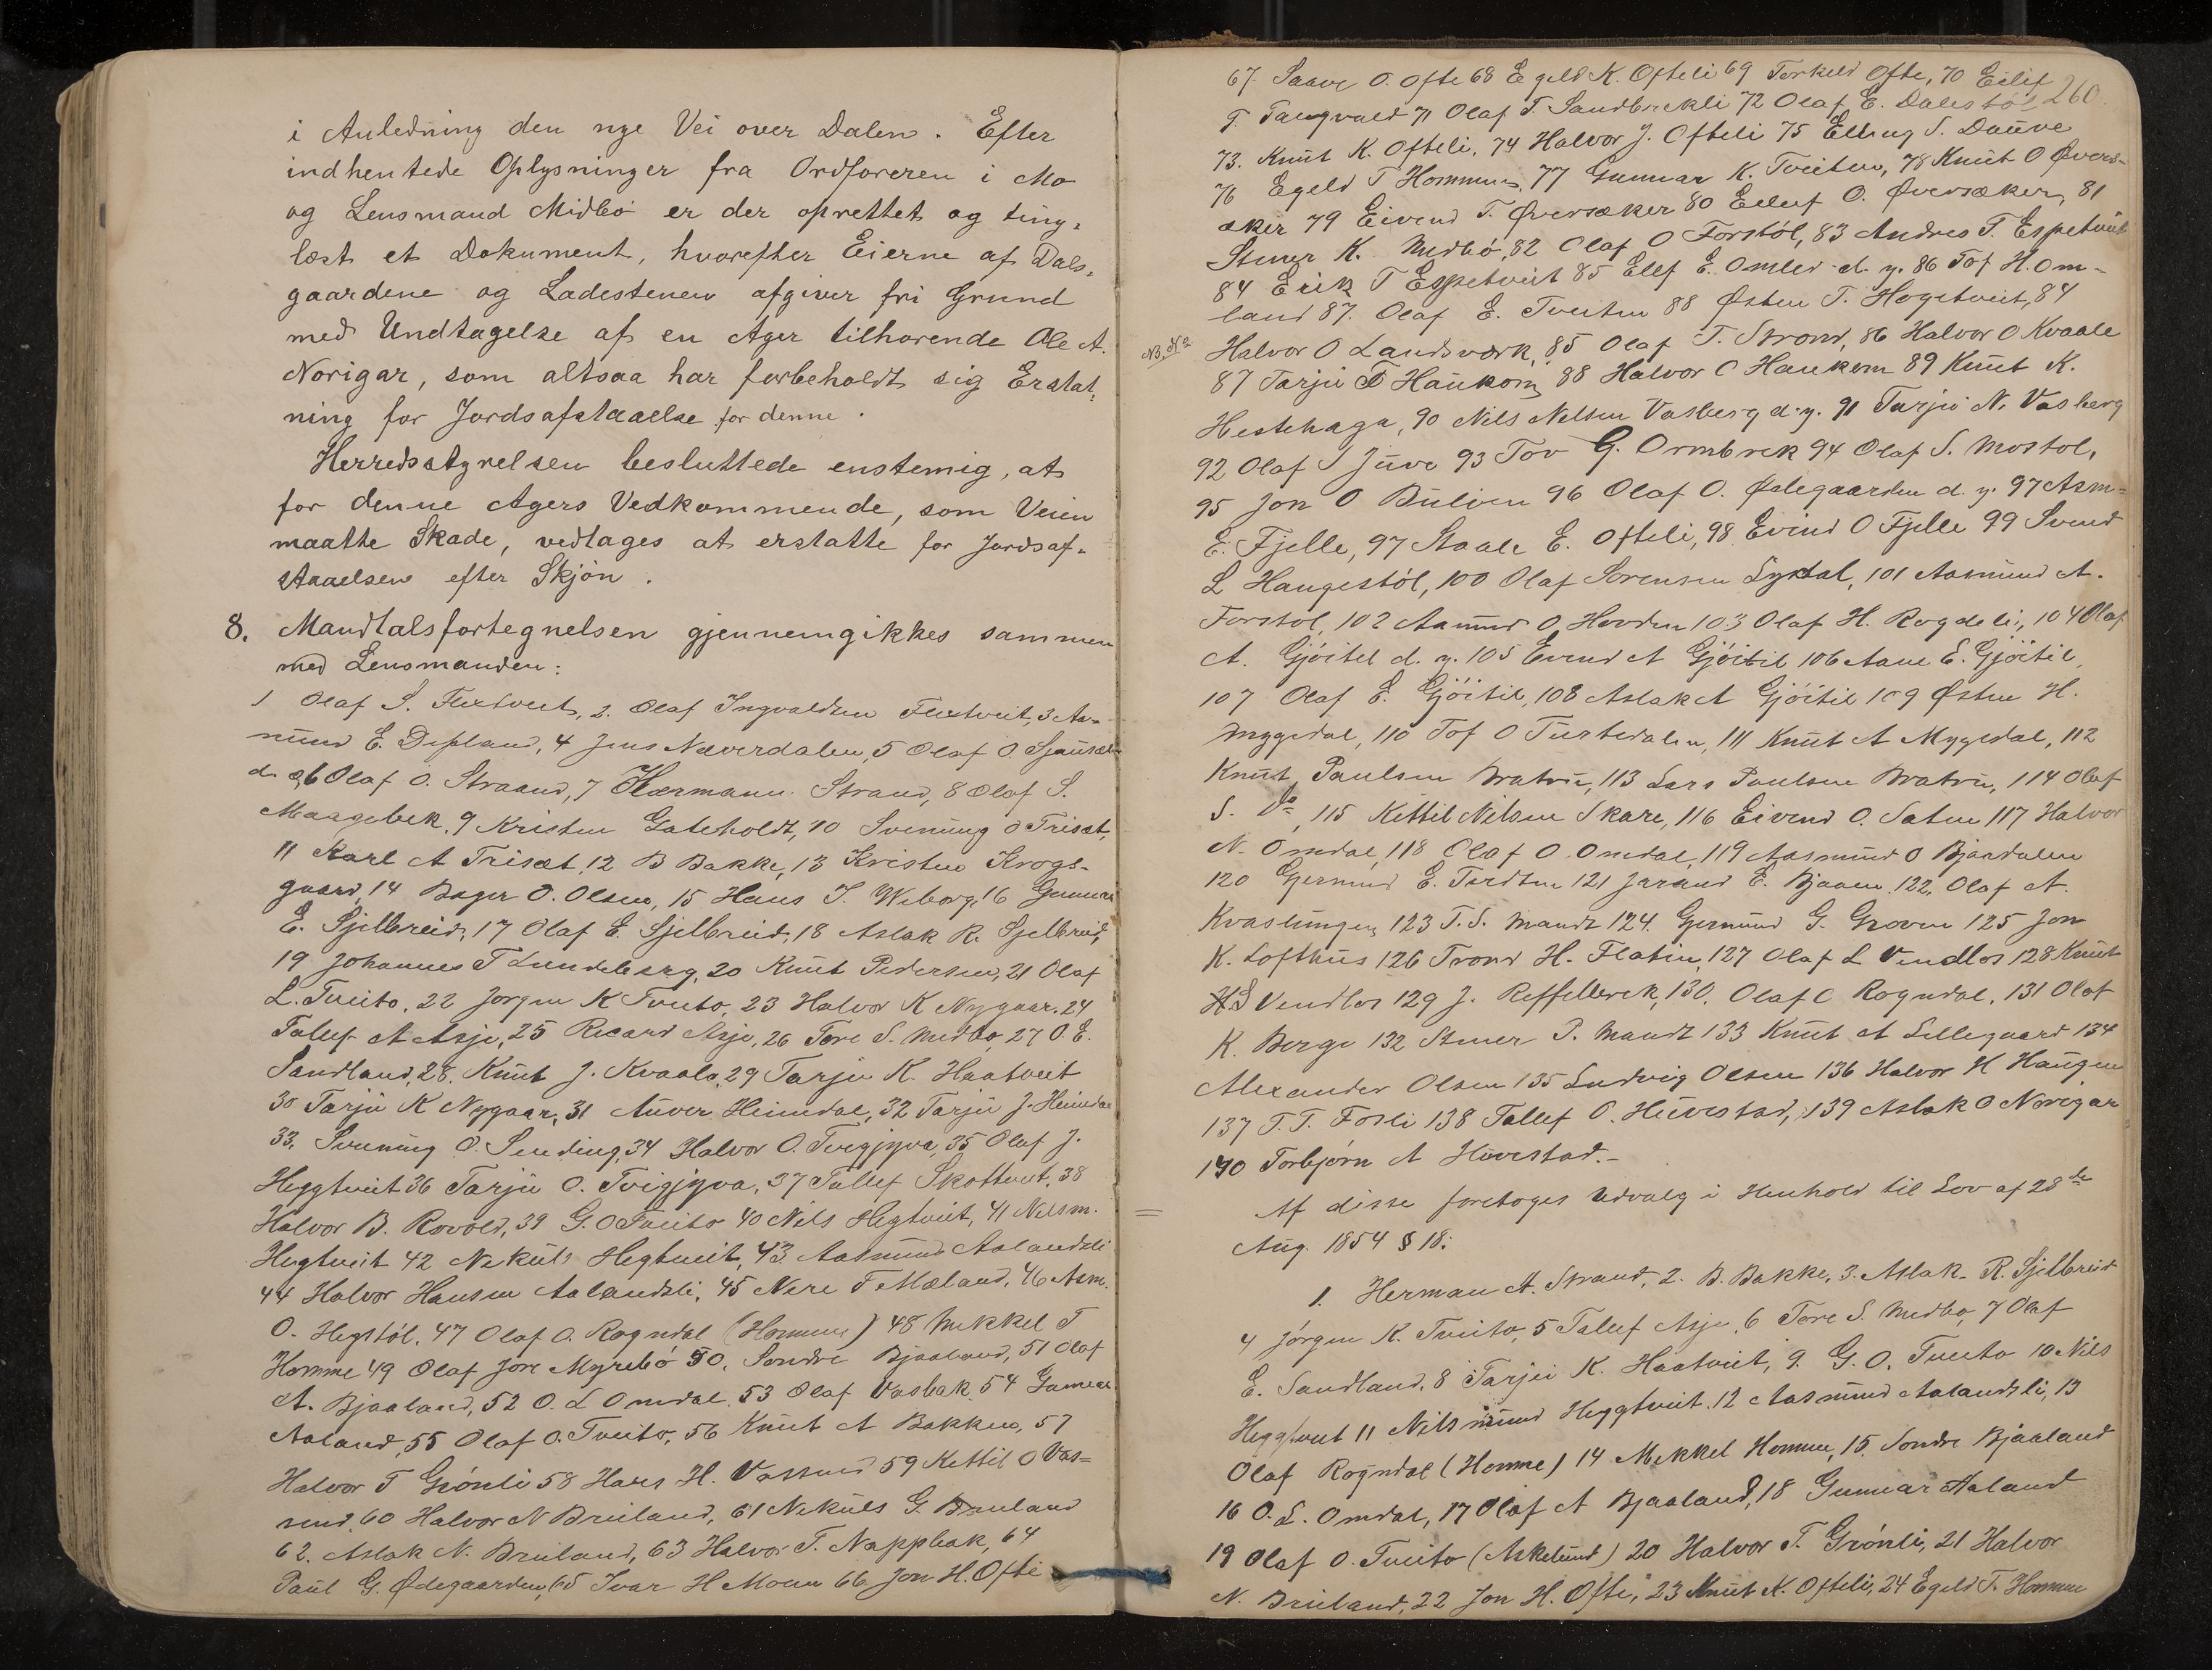 i Anledning den nye Vei over Dalen. Efter
indhentede Oplysninger fra Ordføreren i Mo
og Lensmand Midbö er der oprettet og ting-
læst et Dokument, hvorefter Eierne af Dals-
gaardene og Ladestenen afgiver fri Grund
med Undtagelse af en Ager tilhørende Ole A.
Norigar, som altsaa har forbeholdt sig Erstat-
ning for Jordsafstaaelse for denne.
Herredsstyrelsen besluttede enstemig, at
for denne Agers Vedkommende, som Veien
maatte Skade, vedtages at erstatte for Jordsaf-
staaelsen efter Skjön.
8. Mandtalsfortegnelsen gjennemgikkes sammen
med Lensmanden:
1 Olaf S. Flextveit, 2. Olaf Ingvaldsen Flextveit, 3 Aa-
mund E. Depland, 4 Jens Næverdalen, 5 Olaf O.
d. æ 6 Olaf O. Straand, 7 Hermann Strand, 8 Olaf S.
Maagebek, 9 Kristen Gateholdt, 10 Svenung O Trisæt,
11 Karl A Trisæt, 12 B Bakke, 13 Kristen Krogs-
gaard, 14 Bager O. Olsen, 15 Hans J. Wiborg, 16 Gunnar
E. Sjelbreid, 17 Olaf E. Sjelbreid, 18 Aslak R. Sjelbreid,
19 Johannes T Lundeberg, 20 Knut Pedersen, 21 Olaf
L. Tveito, 22 Jørgen K Tveito, 23 Halvor K Nygaar. 24
Tallef A Asje, 25 Ricard Asje, 26 Tore S. Midbo, 27 O. E.
Sandland, 28. Knut J. Kvaale, 29 Tarjei K. Haatveit
30 Tarjei K Nygaar, 31 Auver Heimdal, 32 Tarjei J. Heimdal
33. Svenung O. Sending, 34 Halvor O. Tveigjyva, 35 Olaf J.
Heggtveit 36 Tarjei O. Tvigjyva, 37 Tallef Skottveit, 38
Halvor B. Rovold, 39 G. O Tveito 40 Nils Hegtveit, 41 Nilsm.
Hegtveit 42 Nekuls Hegtveit, 43 Aasmund Aalandsli
44 Halvor Hansen Aalandsli, 45 Nere T Mæland, 46 Asm.
O. Hegstöl, 47 Olaf O. Rogndal (Homme) 48 Mekkel T
Homme 49 Olaf Jore Myrebö 50. Sondre Bjaaland, 51 Olaf
A. Bjaaland, 52 O. L Omdal 53 Olaf Vasbak 54 Gunnar
Aaland, 55 Olaf O. Tveito, 56 Knut A Bakken, 57
Halvor T Grönli 58 Hans H. Vassend 59 Kettil O Vas-
send, 60 Halvor N Bruland, 61 Nekuls G. Bruland
62. Aslak N. Bruland, 63 Halvor T. Nappbak, 64
Paul G. Ødegaarden, 65 Ivar H Moen 66 Jon H. Ofte
260.
67. Saave O. Ofte 68 Egeld K. Ofteli 69 Torkeld Ofte, 70 Eilif
T. Tangvald 71 Olaf T. Sandbrekli 72 Olaf E. Dalestöl
73. Knut K. Ofteli, 74 Halvor J. Ofteli 75 Elling S. Dauve
76 Egeld T Hommen, 77 Gunnar K. Tveiten, 78 Knut O Øvers-
æker 79 Eivend T. Øversæker 80 Eilef O. Øversæker, 81
Stener K. Midbö, 82 Olaf O Forstöl, 83 Andres T. Espetveit
84 Erik T Espetveit 85 Elef E. Omlid d. y. 86 Tof H. Om-
land 87. Olaf E. Tveiten 88 Østen T. Hogetveit, 84
NB. No Halvor O Landsværk, 85 Olaf T. Strond, 86 Halvor O Kvaale
87 Tarjei T Haukom, 88 Halvor O Haukom 89 Knut K.
Hestehaga, 90 Nils Nilsen Vasberg d. y. 91 Tarjei N. Vasberg
92 Olaf S Juve 93 Tov G. Ormbrek 94 Olaf S. Mostøl,
95 Jon O Bulien 96 Olaf O. Ødegaarden d. y. 97 Asm-
E. Fjelle, 97 Staale E. Ofteli, 98 Evind O Fjelle 99 Svend
L Haugestöl, 100 Olaf Sorensen Lyxtal, 101 Aasmund A.
Forstöl, 102 Aamund O. Hovden 103 Olaf H. Rogdeli, 104 Olaf
A. Gjöitil d. y. 105 Evend A Gjöitil 106 Aane E. Gjöitil,
107 Olaf E. Gjöitil, 108 Aslak A Gjöitil 109 Østen H.
Mygedal, 110 Tof O Turtedalen, 111 Knut A Mygedal, 112
Knut Paulsen Bratvin, 113 Lars Paulsen Bratvin, 114 Olaf
S. Do, 115 Kittil Nilsen Skare, 116 Eivend O. Saten 117 Halvor
N. Omdal, 118 Olaf O. Omdal, 119 Aasmund O Bjaadalen
120 Germund E. 121 Jarand E. Bjaaen 122. Olaf A.
Kvaslingen 123 T. S. Mandt 124. Germund G. Groven 125 Jon
K. Lofthus 126 Trond H. Flatin, 127 Olaf L Vendlos 128 Knut
S Vendlos 129 J. Reffelbrek, 130. Olaf O Rogndal, 131 Olaf
K. Berge 132 Stener P. Mandt 133 Knut A Lillegaard 134
Alexander Olsen 135 Ludvig Olsen 136 Halvor H Haugen
137 T. T. Fosli 138 Tallef O. Huvestad, 139 Aslak O Norigar
140 Torbjörn A Huvestad.-
Af disse foretoges Udvalg i Henhold til Lov af 28de
Aug. 1854 § 18:
1. Herman A. Strand, 2. B. Bakke, 3. Aslak R. Sjelbreid
4 Jörgen K. Tveito, 5 Tallef Asje, 6 Tore S. Midbo, 7 Olaf
E. Sandland, 8 Tarjei K. Haatveit, 9. G. O. Tveito 10 Nils
Heggtveit 11 Nilsmund Heggtveit, 12 Aasmund Aalandsli, 13
Olaf Rogndal (Homme) 14 Mekkel Homme, 15 Sondre Bjaaland
16 O. L. Omdal, 17 Olaf A Bjaaland, 18 Gunnar Aaland
19 Olaf O. Tveito (Askelund) 20 Halvor T. Grönli, 21 Halvor
N. Bruland, 22 Jon H. Ofte, 23 Knut K. Ofteli, 24 Egeld T. Homme